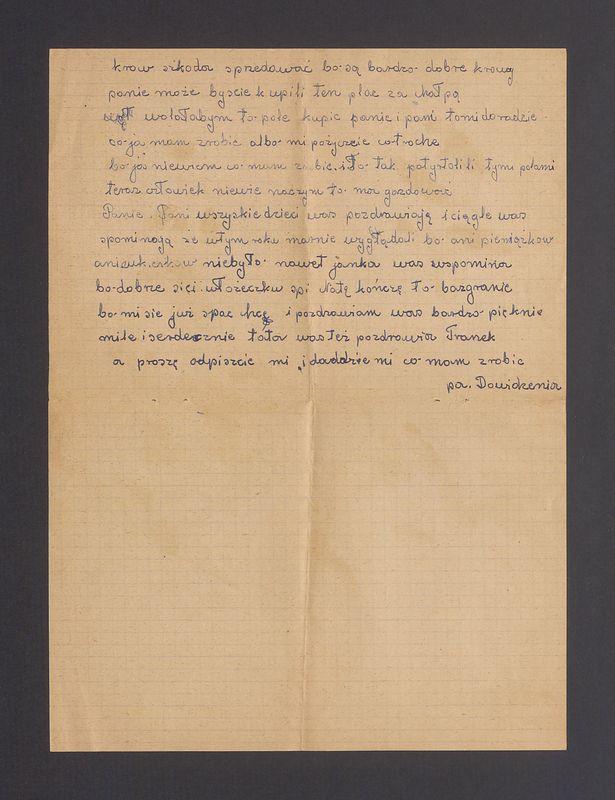 krow szkoda sprzedawać bo są bardzo dobre krowy
panie może byscie kupili ten plac za chałpą
wolałabym to pole kupic panie i pani to mi doradzie
co ja mam zrobić albo mi pożyczcie co troche
bo ja niewiem co mam zrobic i to tak potyrtolili tymi polami
teraz człowiek niewie naczym to ma gozdować
Panie. Pani wszyskie dzieci was pozdrawiają i ciągle was
spominają że w tym roku marnie wyglądali bo ani pieniązkow
ani cukierkow niebyło nawet janka was wspomina
bo dobrze sie ci w łożeczku spi Natę kończę to bazgranie
bo mi sie juz spac hcę i pozdrawiam was bardzo pięknie
mile i serdecznie tata was też pozdrawia Franek
a proszę odpiszcie mi i daddzie mi co mam zrobic
pa. Dowidzenia